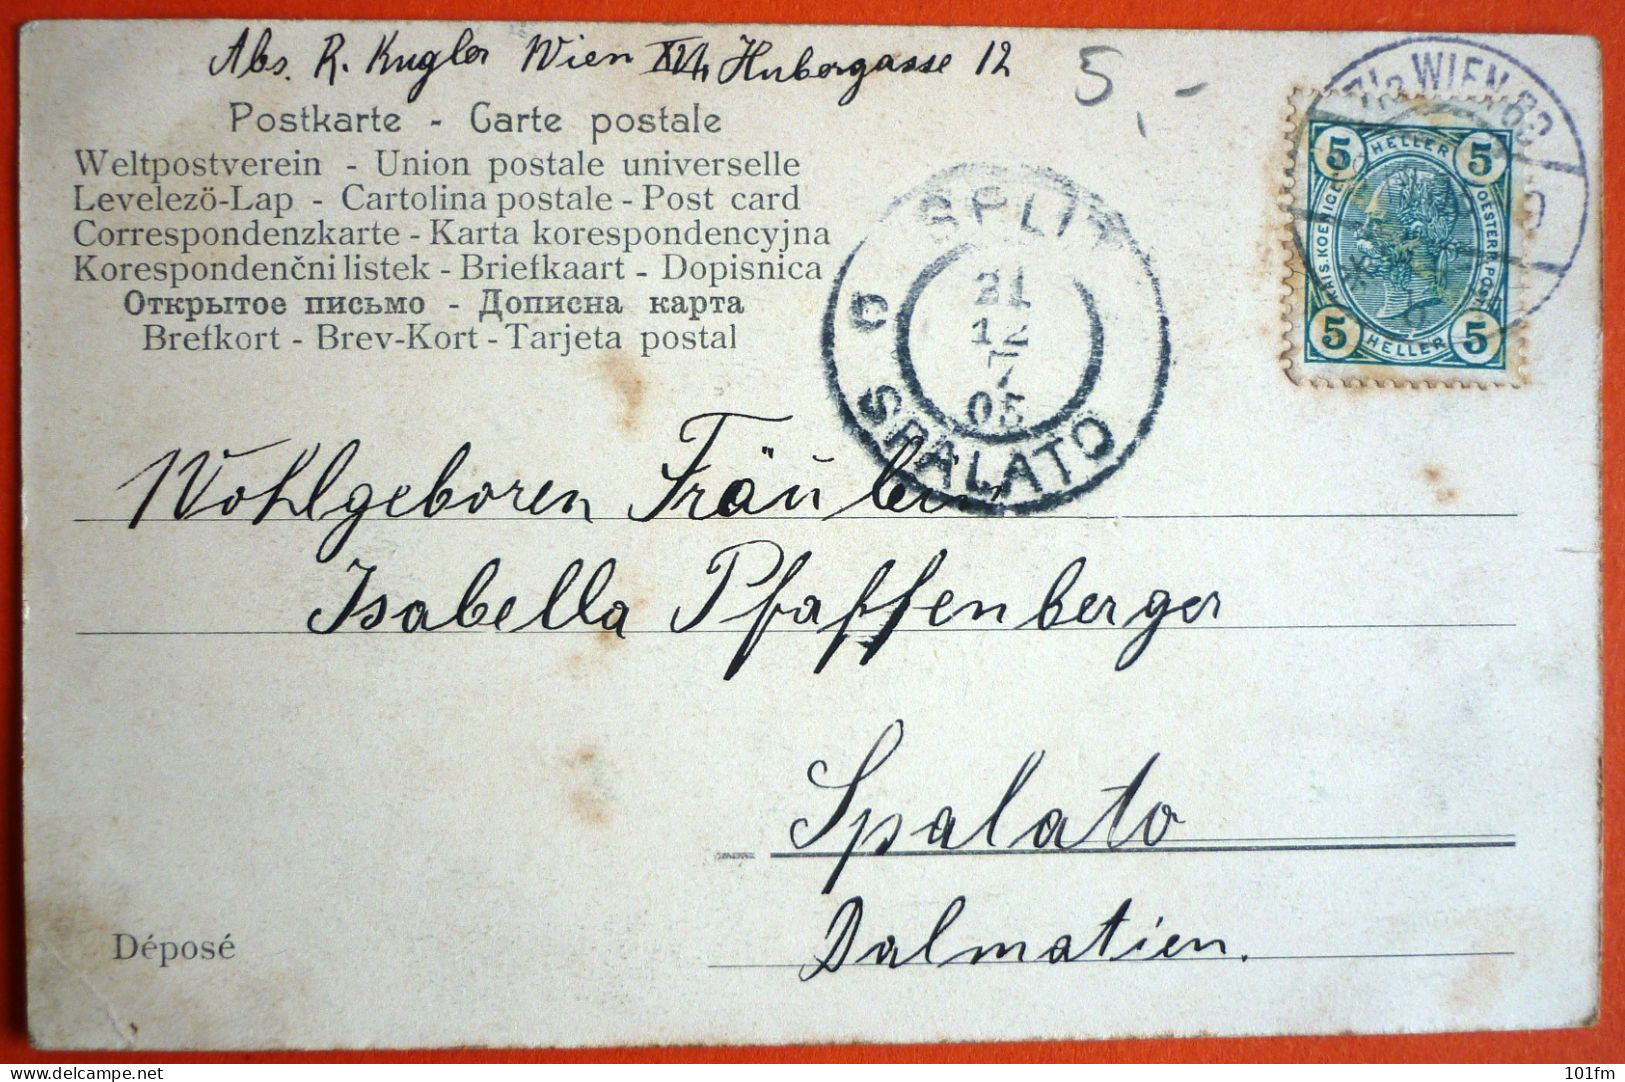 Abs. R. Kugler Wien XVI/1 Hubergasse 12
5,-
Postkarte - Carte postale
Weltpostverein - Union postale universelle
Levelezö-Lap - Cartolina postale - Post card
Correspondenzkarte - Karta korespondencyjna
Korespondenčni listek - Briefkaart - Dopisnica
Открытое письмо - Дописна карта
Brefkort - Brev-Kort - Tarjeta postal
WIEN
5 HELLER 5
KAIS. KOENIGL. OESTERR. POST
5 HELLER 5
SPLIT
21
12
7
05
SPALATO
Wohlgeboren Fräulein
Isabella Pfaffenberger
Spalato
Dalmatien.
Déposé
101fm